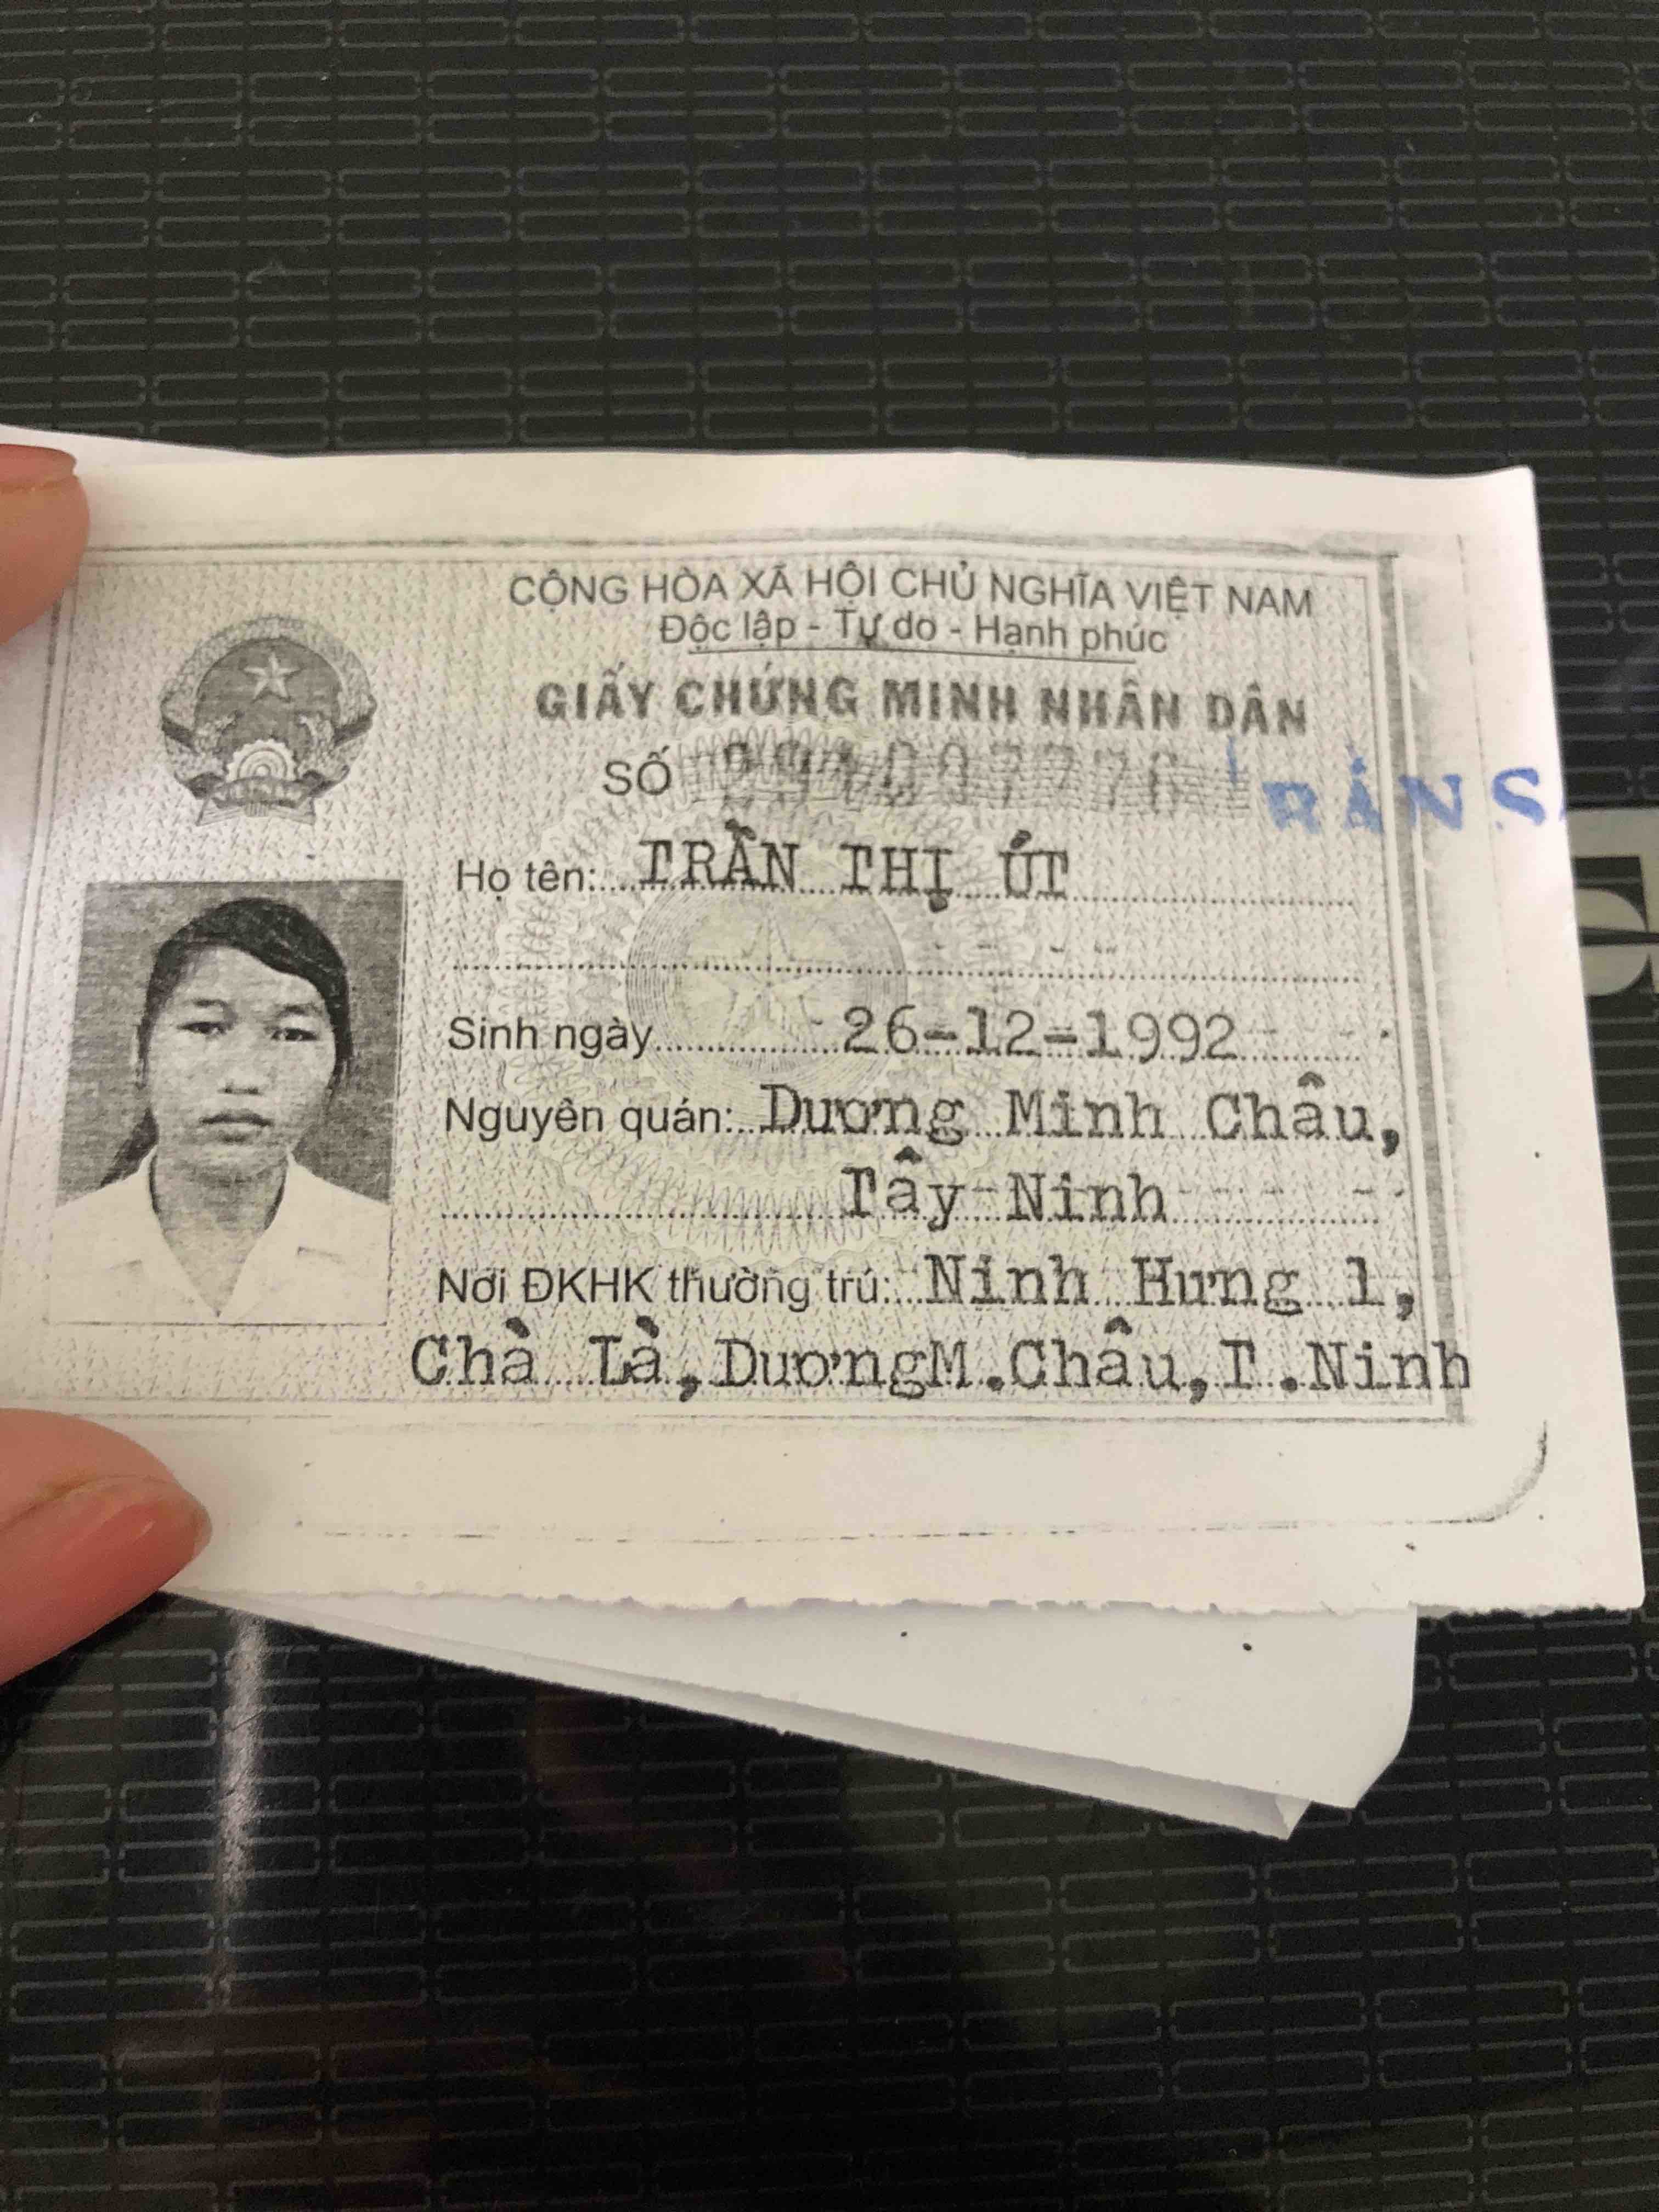 CỘNG HÒA XÃ HỘI CHỦ NGHĨA VIỆT NAM
Độc lập - Tự do - Hạnh phúc
GIẤY CHỨNG MINH NHÂN DÂN
SỐ
Họ tên: TRẦN THỊ ÚT
Sinh ngày 26-12-1992
Nguyên quán: Dương Minh Châu,
Tây Ninh
Nơi ĐKHK thường trú: Ninh Hưng 1,
Chà Là, DươngM.Châu,T.Ninh